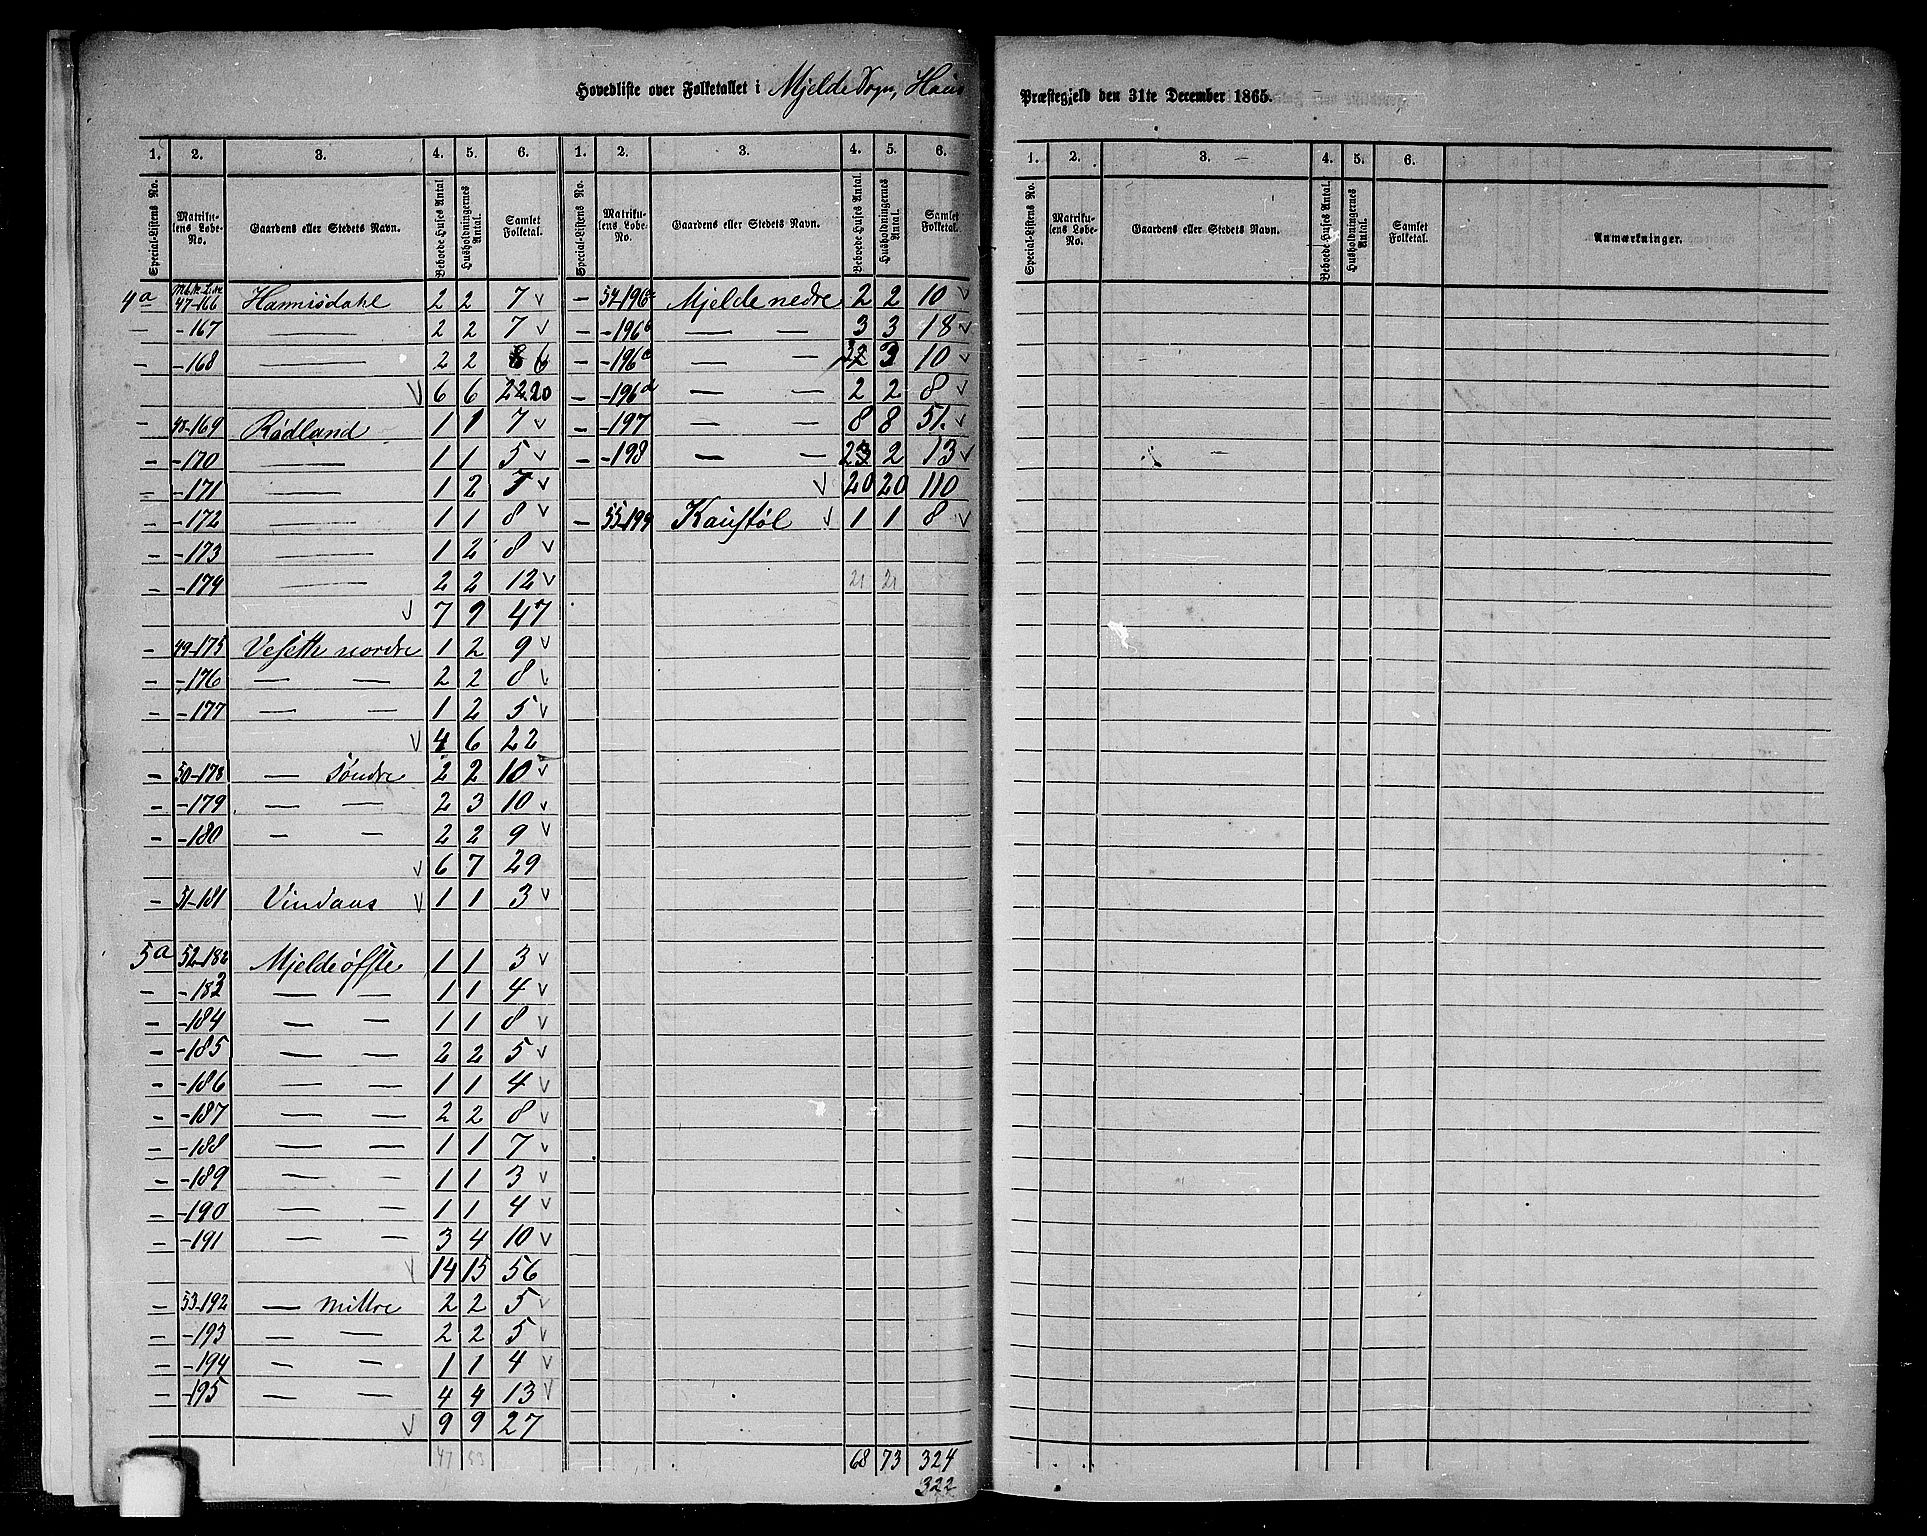 Hovedliste over Folketallet i Mjelde Sogn, Haus Præstegjeld den 31te December 1865.
1. 2. 3. 4. 5. 6. 1. 2. 3. 4. 5. 6.
Special-Listens No. Matrikulens Lobe-No. Gaardens eller Stedets Navn. Beboede Huses Antal. Husholdningernes Antal. Samlet Folketal. Special-Listens No. Matrikulens Lobe-No. Gaardens eller Stedets Navn. Beboede Huses Antal. Husholdningernes Antal. Samlet Folketal.
4a 47-166 Hannisdahl 2 2 7 v
— -167 — 2 2 7 v
— -168 — 2 2 6
v 6 6 22 20
— 48-169 Rødland 1 1 7 v
— -170 — 1 1 5 v
— -171 — 1 2 7 v
— -172 — 1 1 8 v
— -173 — 1 2 8 v
— -174 — 2 2 12 v
v 7 9 47
— 49-175 Vesette nordre 1 2 9 v
— -176 — — 2 2 8 v
— -177 — — 1 2 5 v
v 4 6 22
— 50-178 — søndre 2 2 10 v
— -179 — — 2 3 10 v
— -180 — — 2 2 9 v
v 6 7 29
— 51-181 Vindaus v 1 1 3 v
5a 52-182 Mjelde øfste 1 1 3 v
— -183 — — 1 1 4 v
— -184 — — 1 1 8 v
— -185 — — 2 2 5 v
— -186 — — 1 1 4 v
— -187 — — 2 2 8 v
— -188 — — 1 1 7 v
— -189 — — 1 1 3 v
— -190 — — 1 1 4 v
— -191 — — 3 4 10 v
v 14 15 56
— 53-192 — mittre 2 2 5 v
— -193 — — 2 2 5 v
— -194 — — 1 1 4 v
— -195 — — 4 4 13 v
v 9 9 27
47 53
— 54-196a Mjelde nedre 2 2 10 v
— -196b — — 3 3 18 v
— -196c — — 3 3 10 v
— -196d — — 2 2 8 v
— -197 — — 8 8 51. v
— -198 — — 2 2 13 v
v 20 20 110
— 55-199 Kaustøl v 1 1 8 v
21 21
68 73 324
322
1. 2. 3. 4. 5. 6.
Special-Listens No. Matrikulens Lobe-No. Gaardens eller Stedets Navn. Beboede Huses Antal. Husholdningernes Antal. Samlet Folketal. Anmærkninger.